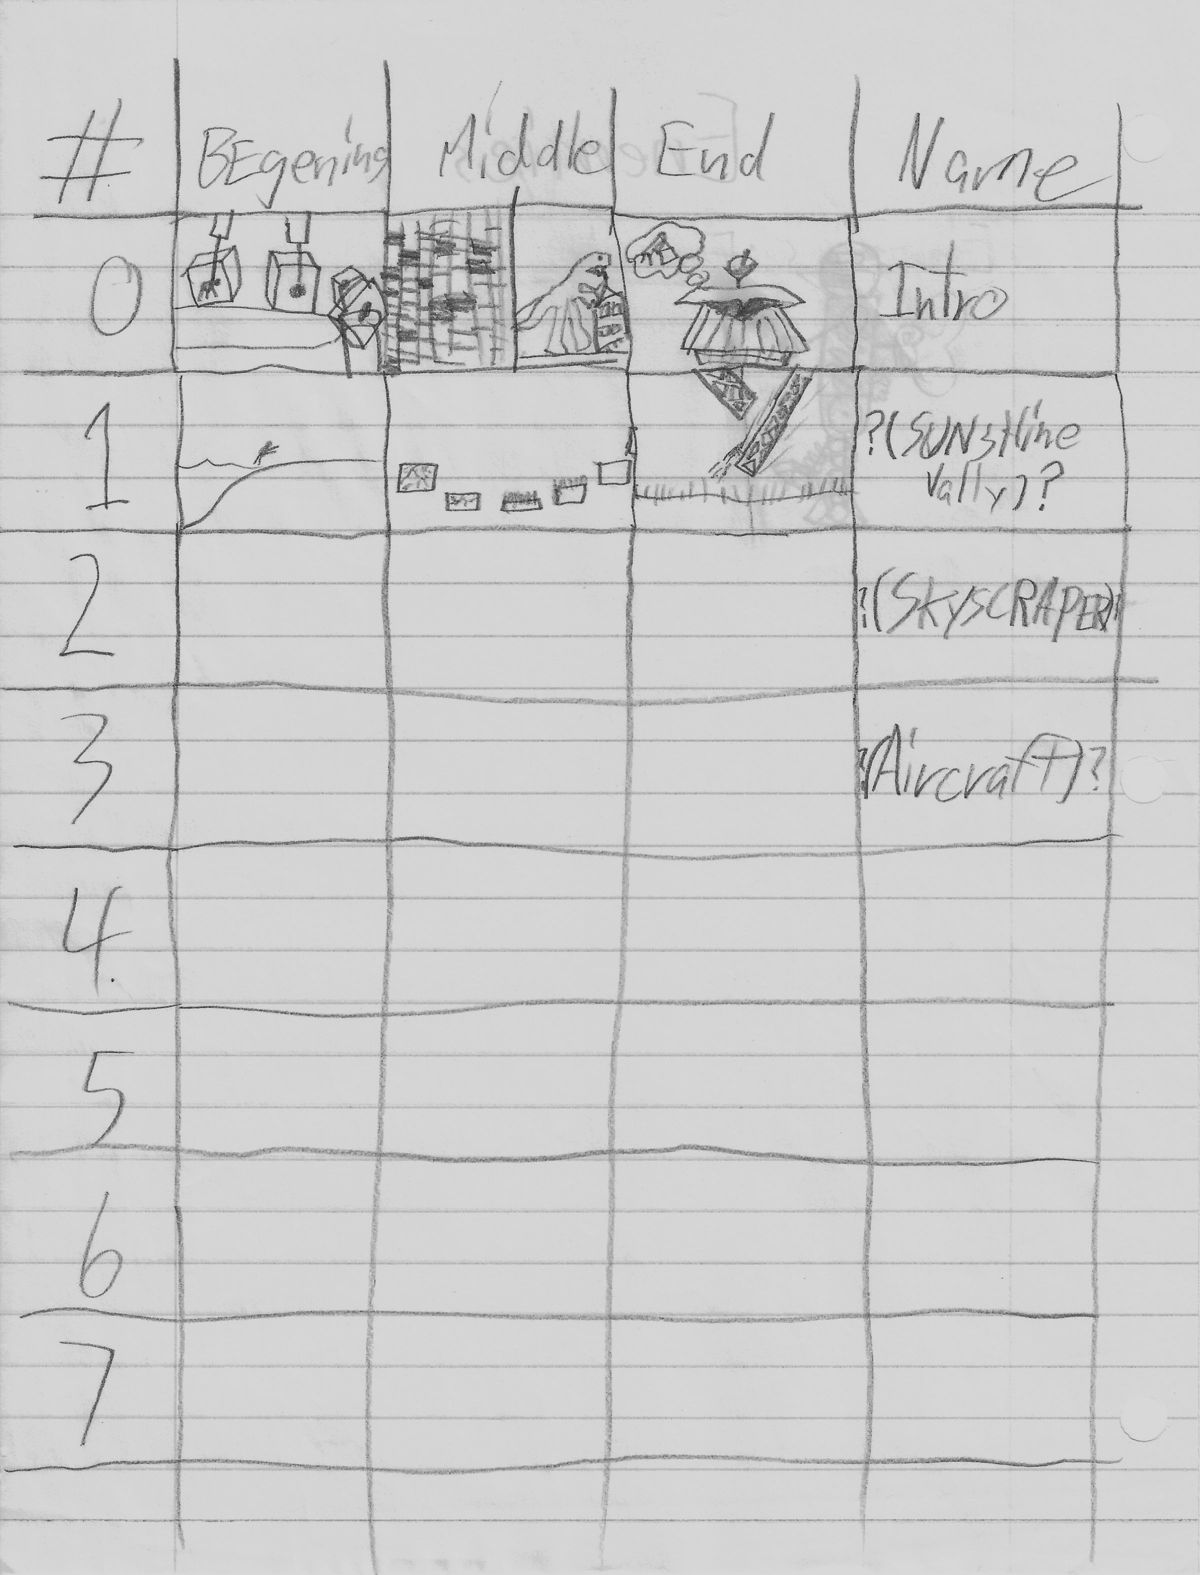 # BEgening Middle End Name
0 Intro
1 ?(SUNshine
Vally)?
2 ?(SKYSCRAPER)?
3 ?(Aircraft)?
4
5
6
7